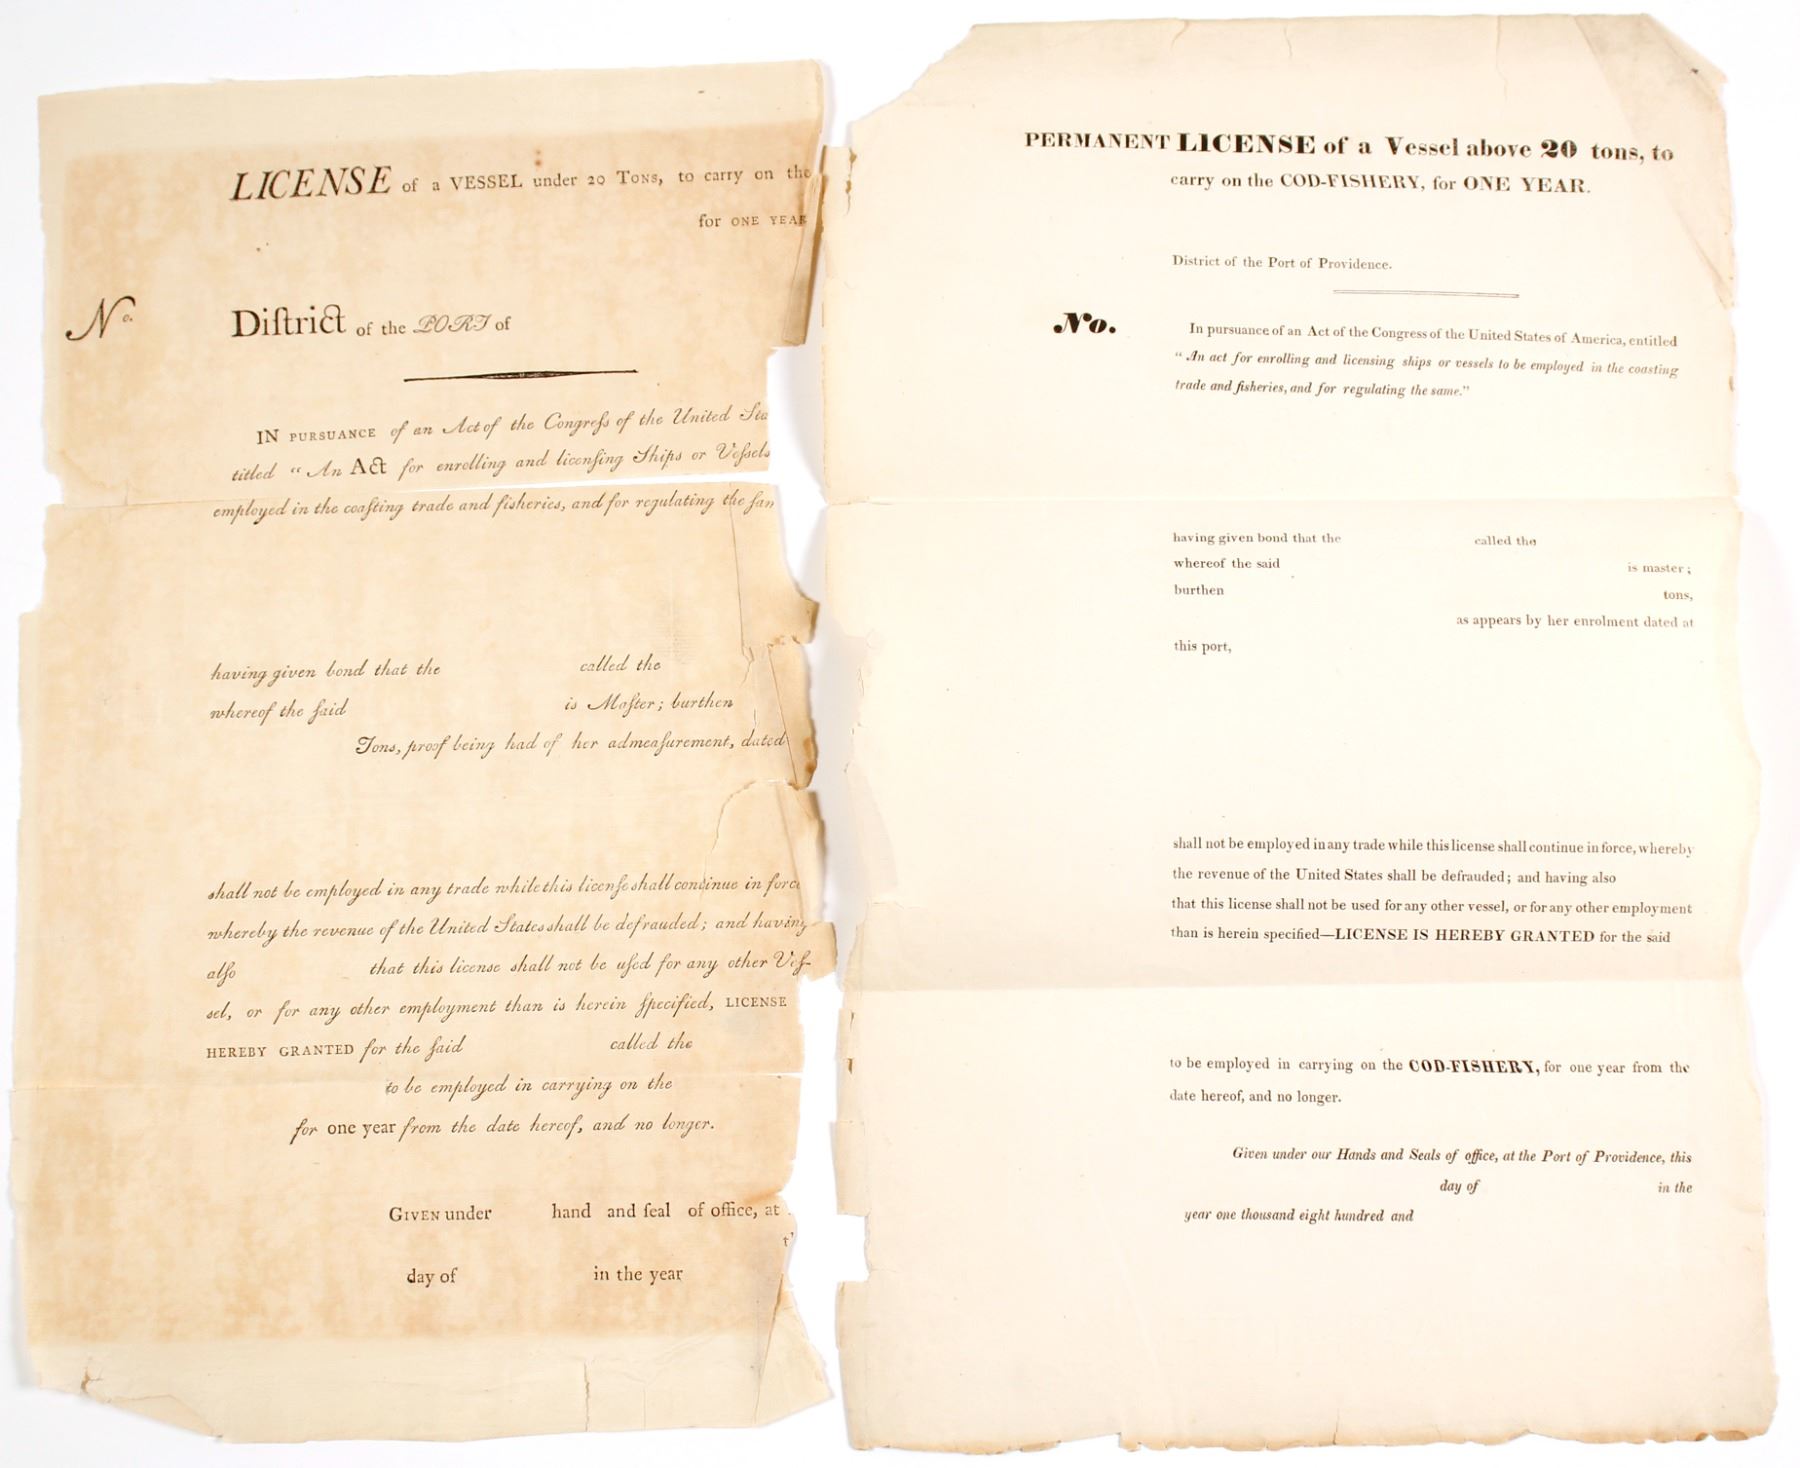 LICENSE of a VESSEL under 20 Tons, to carry on the
for ONE YEAR
No.
Diſtrict of the PORT of
IN PURSUANCE of an Act of the Congreſs of the United Sta
titled "An Act for enrolling and licenſing Ships or Veſsels
employed in the coaſting trade and fisheries, and for regulating the ſam
having given bond that the called the
whereof the ſaid is Maſter; burthen
Tons, proof being had of her admeaſurement, dated
shall not be employed in any trade while this licenſe shall continue in force
whereby the revenue of the United States shall be defrauded; and having
alſo that this license shall not be uſed for any other Veſ-
sel, or for any other employment than is herein ſpecified, LICENSE
HEREBY GRANTED for the ſaid called the
to be employed in carrying on the
for one year from the date hereof, and no longer.
GIVEN under hand and ſeal of office, at
day of in the year
PERMANENT LICENSE of a Vessel above 20 tons, to
carry on the COD-FISHERY, for ONE YEAR.
District of the Port of Providence.
No.
In pursuance of an Act of the Congress of the United States of America, entitled
"An act for enrolling and licensing ships or vessels to be employed in the coasting
trade and fisheries, and for regulating the same."
having given bond that the called the
whereof the said is master;
burthen tons,
as appears by her enrolment dated at
this port,
shall not be employed in any trade while this license shall continue in force, whereby
the revenue of the United States shall be defrauded; and having also
that this license shall not be used for any other vessel, or for any other employment
than is herein specified—LICENSE IS HEREBY GRANTED for the said
to be employed in carrying on the COD-FISHERY, for one year from the
date hereof, and no longer.
Given under our Hands and Seals of office, at the Port of Providence, this
day of in the
year one thousand eight hundred and